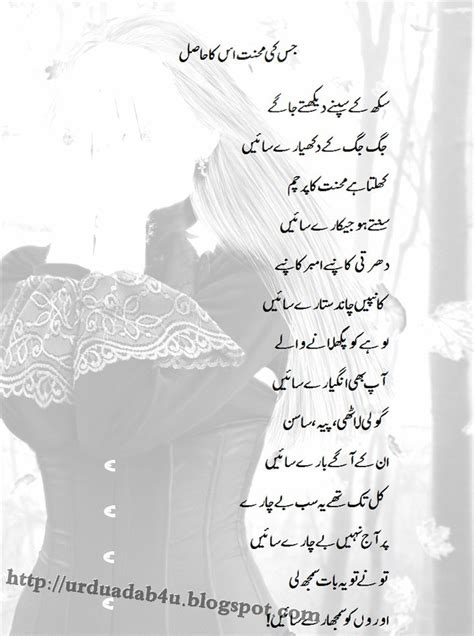 جس کی محنت اس کا حاصل
سکھ کے سپنے دیکھتے جاگے
جگ جگ کے دکھیارے سائیں
کھلتا ہے محنت کا پرچم
سنتے ہو جیکارے سائیں
دھرتی کانپے امبر کانپے
کانپیں چاند ستارے سائیں
لوہے کو پگھلانے والے
آپ بھی انگیارے سائیں
گولی لاٹھی، پیسہ، ساسن
ان کے آگے ہارے سائیں
کل تک تھے یہ سب بے چارے
پر آج نہیں بے چارے سائیں
تو نے تو یہ بات سمجھ لی
اوروں کو سمجھا رے سائیں!
http://urduadab4u.blogspot.com